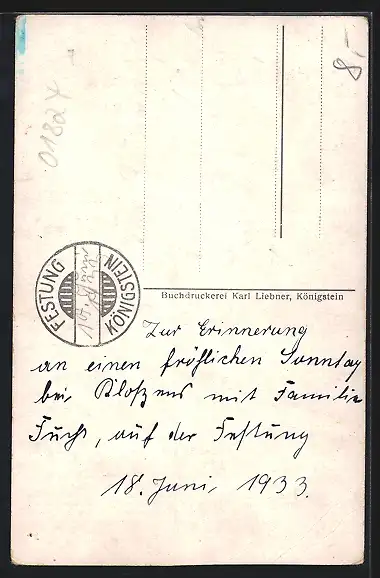 8,-
01827
FESTUNG
KÖNIGSTEIN
Buchdruckerei Karl Liebner, Königstein
Zur Erinnerung
an einen fröhlichen Sonntag
bei mit Familie
Fuchs, auf der Festung
18. Juni 1933.